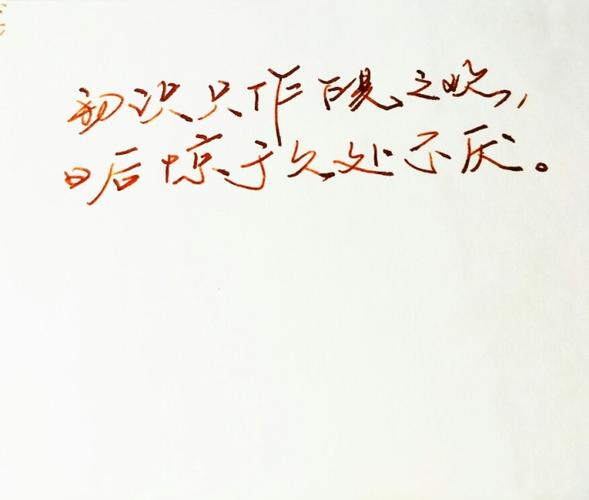 初识只作乍见之欢，
日后惊于久处不厌。